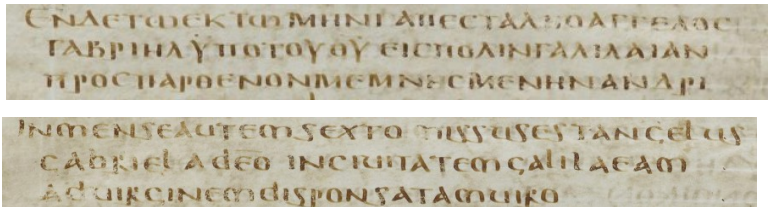 ΕΝΔΕΤΩΕΚΤΩΜΗΝΙΑΠΕϹΤΑΛΗΟΑΓΓΕΛΟϹ
ΓΑΒΡΙΗΛΫΠΟΤΟΥΘΥ̅ ΕΙϹΠΟΛΙΝΓΑΛΙΛΑΙΑΝ
ΠΡΟϹΠΑΡΘΕΝΟΝΜΕΜΝΗϹΜΕΝΗΝΑΝΔΡΙ
INMENSEAUTEMSEXTO MISSUSESTANGELUS
GABRIEL ADEO INCIUITATEM GALILAEAM
ADUIRGINEMDISPONSATAMUIRO